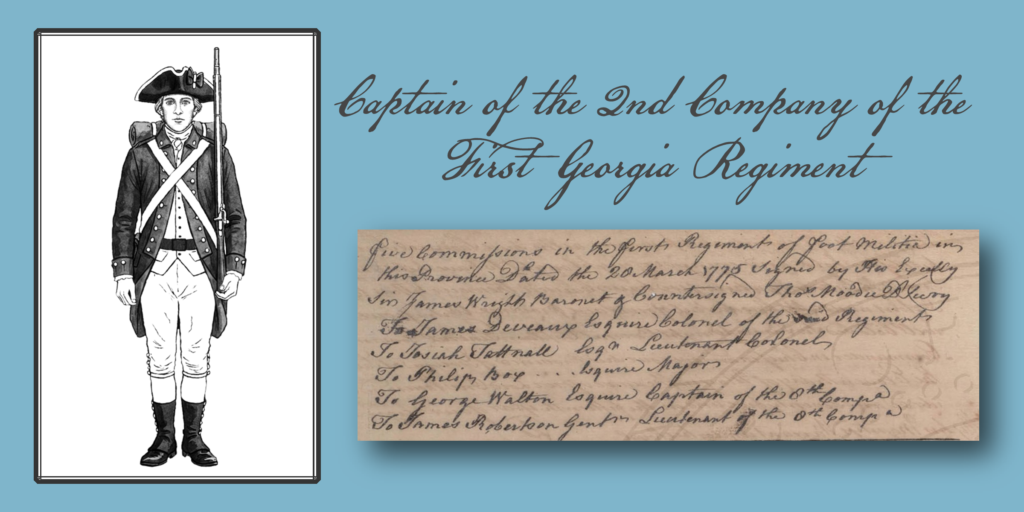 Captain of the 2nd Company of the
First Georgia Regiment
five Commissions in the first Regiment of foot Militia in
this Province Dated the 20 March 1775 Signed by His Excelly
Sir James Wright Baronet & Countersigned Thos Moodie D Secry
To James Deveaux Esquire Colonel of the said Regiment
To Josiah Tattnall Esqr Lieutenant Colonel
To Philip Box ... Esquire Major
To George Walton Esquire Captain of the 8th Compa
To James Robertson Gentn Lieutenant of the 8th Compa